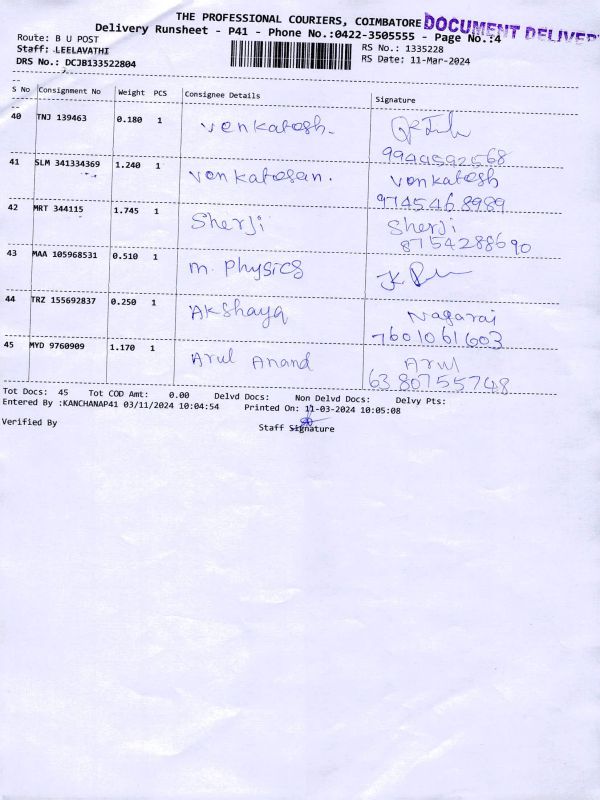 THE PROFESSIONAL COURIERS, COIMBATORE
DOCUMENT DELIVER
Delivery Runsheet - P41 - Phone No.:0422-3505555 - Page No.:4
Route: B U POST
RS No.: 1335228
Staff: LEELAVATHI
RS Date: 11-Mar-2024
DRS No.: DCJB133522804
S No Consignment No Weight PCS Consignee Details Signature
40 TNJ 139463 0.180 1 Venkatesh.
9944592568
41 SLM 341334369 1.240 1 Venkatesan. Venkatesh
9745468989
42 MRT 344115 1.745 1 Sherji Sherji
8715428869 0
43 MAA 105968531 0.510 1 M. Physics
44 TRZ 155692837 0.250 1 Akshaya Nagaraj
7601061603
45 MYD 9760909 1.170 1 Arul Anand Arul
6380755748
Tot Docs: 45 Tot COD Amt: 0.00 Delvd Docs: Non Delvd Docs: Delvy Pts:
Entered By :KANCHANAP41 03/11/2024 10:04:54 Printed On: 11-03-2024 10:05:08
Verified By Staff Signature